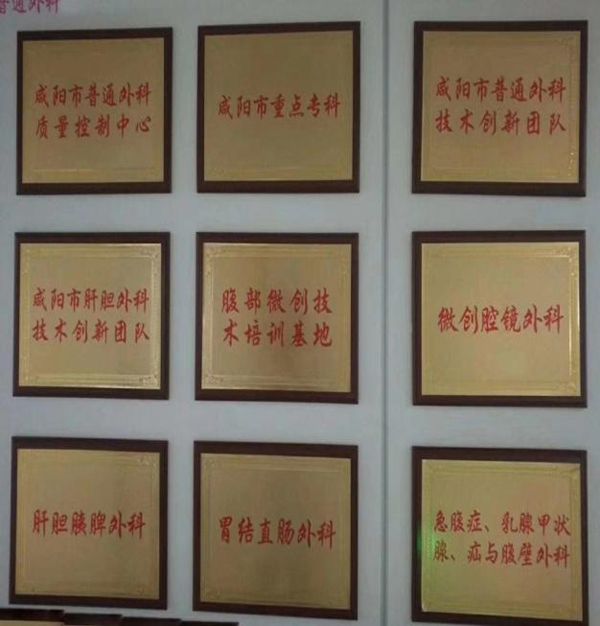 普通外科
咸阳市普通外科
质量控制中心
咸阳市重点专科
咸阳市普通外科
技术创新团队
咸阳市肝胆外科
技术创新团队
腹部微创技
术培训基地
微创腔镜外科
肝胆胰脾外科
胃结直肠外科
急腹症、乳腺甲状
腺、疝与腹壁外科